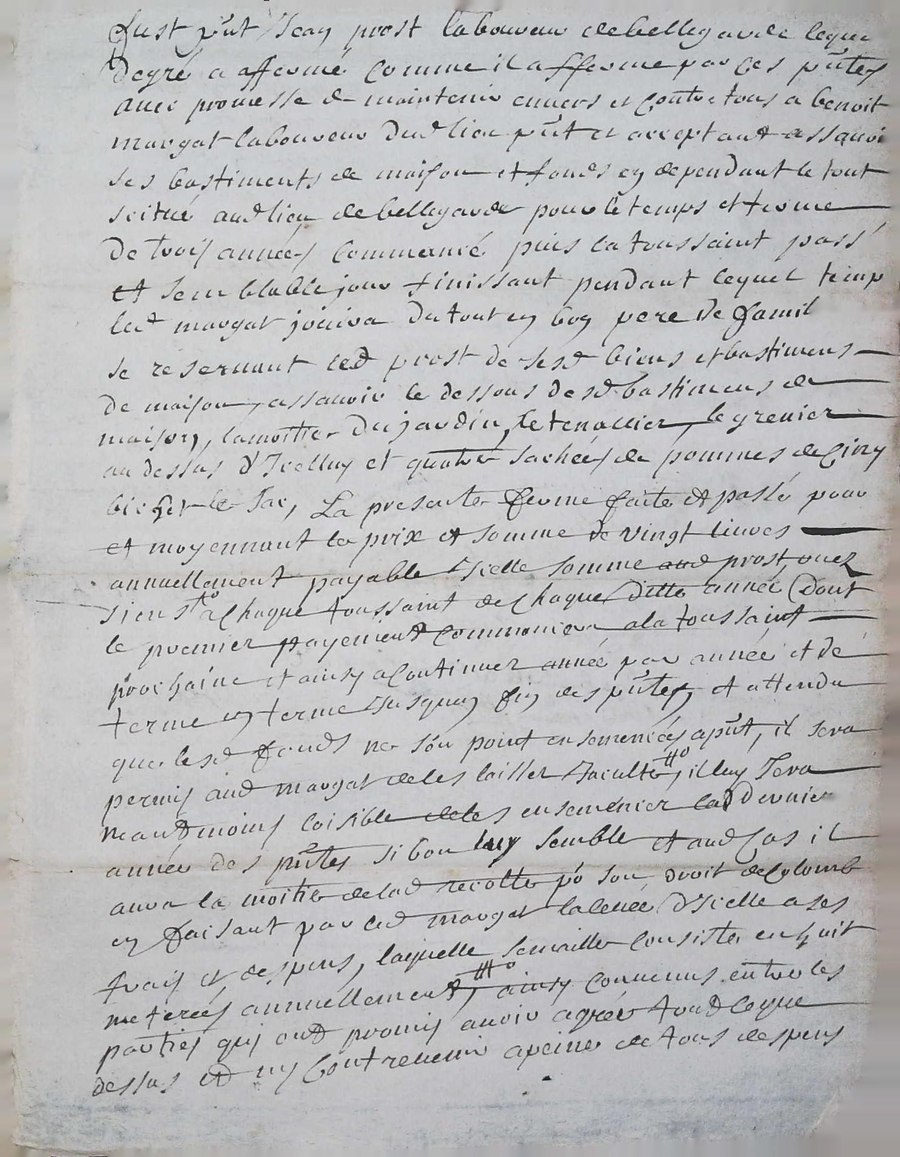 fust pnt Jean prost laboureur de bellegarde lequel
degré a affermé comme il afferme par ces pntes
avec promesse de maintenir envers et contre tous a benoit
margat laboureur dud lieu pnt et acceptant assavoir
ses bastiments de maison et fonds en dependant le tout
scitué aud lieu de bellegarde pour le temps et terme
De trois années commancé puis la toussaint passé
et semblable jour finissant pendant lequel temp
led margat jouira du tout en bon pere de famil
se reservant led prost de sesd biens et bastimens
de maison, assavoir le dessous desd bastimens de
maison, la moitier du jardin, le tenallier, le grenier
au dessus d'Icelluy et quatre sachées de pommes de cinq
bichet le sac, La presente ferme faite et passé pour
et moyennant le prix et somme de vingt livres
annuellement payable Icelle somme aud prost, ou ez
siens to a chaque toussaint de chaque ditte année Dont
le premier payement commancera a la toussaint
prochaine et ainsy a continuer année par année et de
terme en terme Jusques fin des pntes, et attendu
que lesd fonds ne son point ensemencés apnt, il sera
permis aud margat de les laisser, il luy sera
neaudmoins loisible de les ensemencer lad Dernier
année des pntes si bon luy semble et aud cas il
aura la moitier de lad recolte po son droit de Colomb
en faisant par led margat la levée d'Icelle a ses
frais et despens, laquelle semaille consiste en huit
meterés annuellement, ainsy convenus entre les
parties qui ont promis avoir agréer tout ce que
dessus et ny contrevenir a peine de tous despens